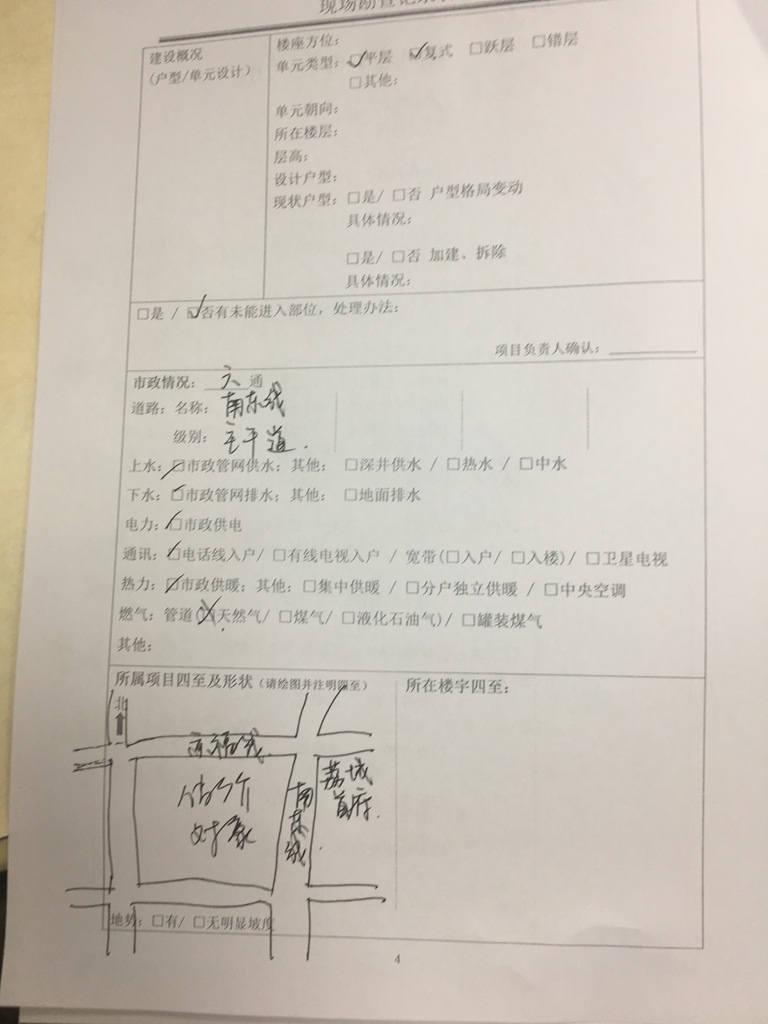 现场勘查记录
建设概况
(户型/单元设计)
楼座方位：
单元类型：☑平层 ☑复式 □跃层 □错层
□其他：
单元朝向：
所在楼层：
层高：
设计户型：
现状户型：□是/ □否 户型格局变动
具体情况：
□是/ □否 加建、拆除
具体情况：
□是 / ☑否有未能进入部位，处理办法：
项目负责人确认：
市政情况： 六 通
道路：名称： 南东线
级别： 主干道.
上水：☑市政管网供水；其他：□深井供水 / □热水 / □中水
下水：☑市政管网排水；其他：□地面排水
电力：☑市政供电
通讯：☑电话线入户/ □有线电视入户 / 宽带(□入户/ □入楼)/ □卫星电视
热力：☑市政供暖；其他：□集中供暖 / □分户独立供暖 / □中央空调
燃气：管道(☒天然气/ □煤气/ □液化石油气)/ □罐装煤气
其他：
所属项目四至及形状（请绘图并注明四至）
所在楼宇四至：
北
估价
对象
南东线
荔城
首府.
地势：□有/ □无明显坡度
4